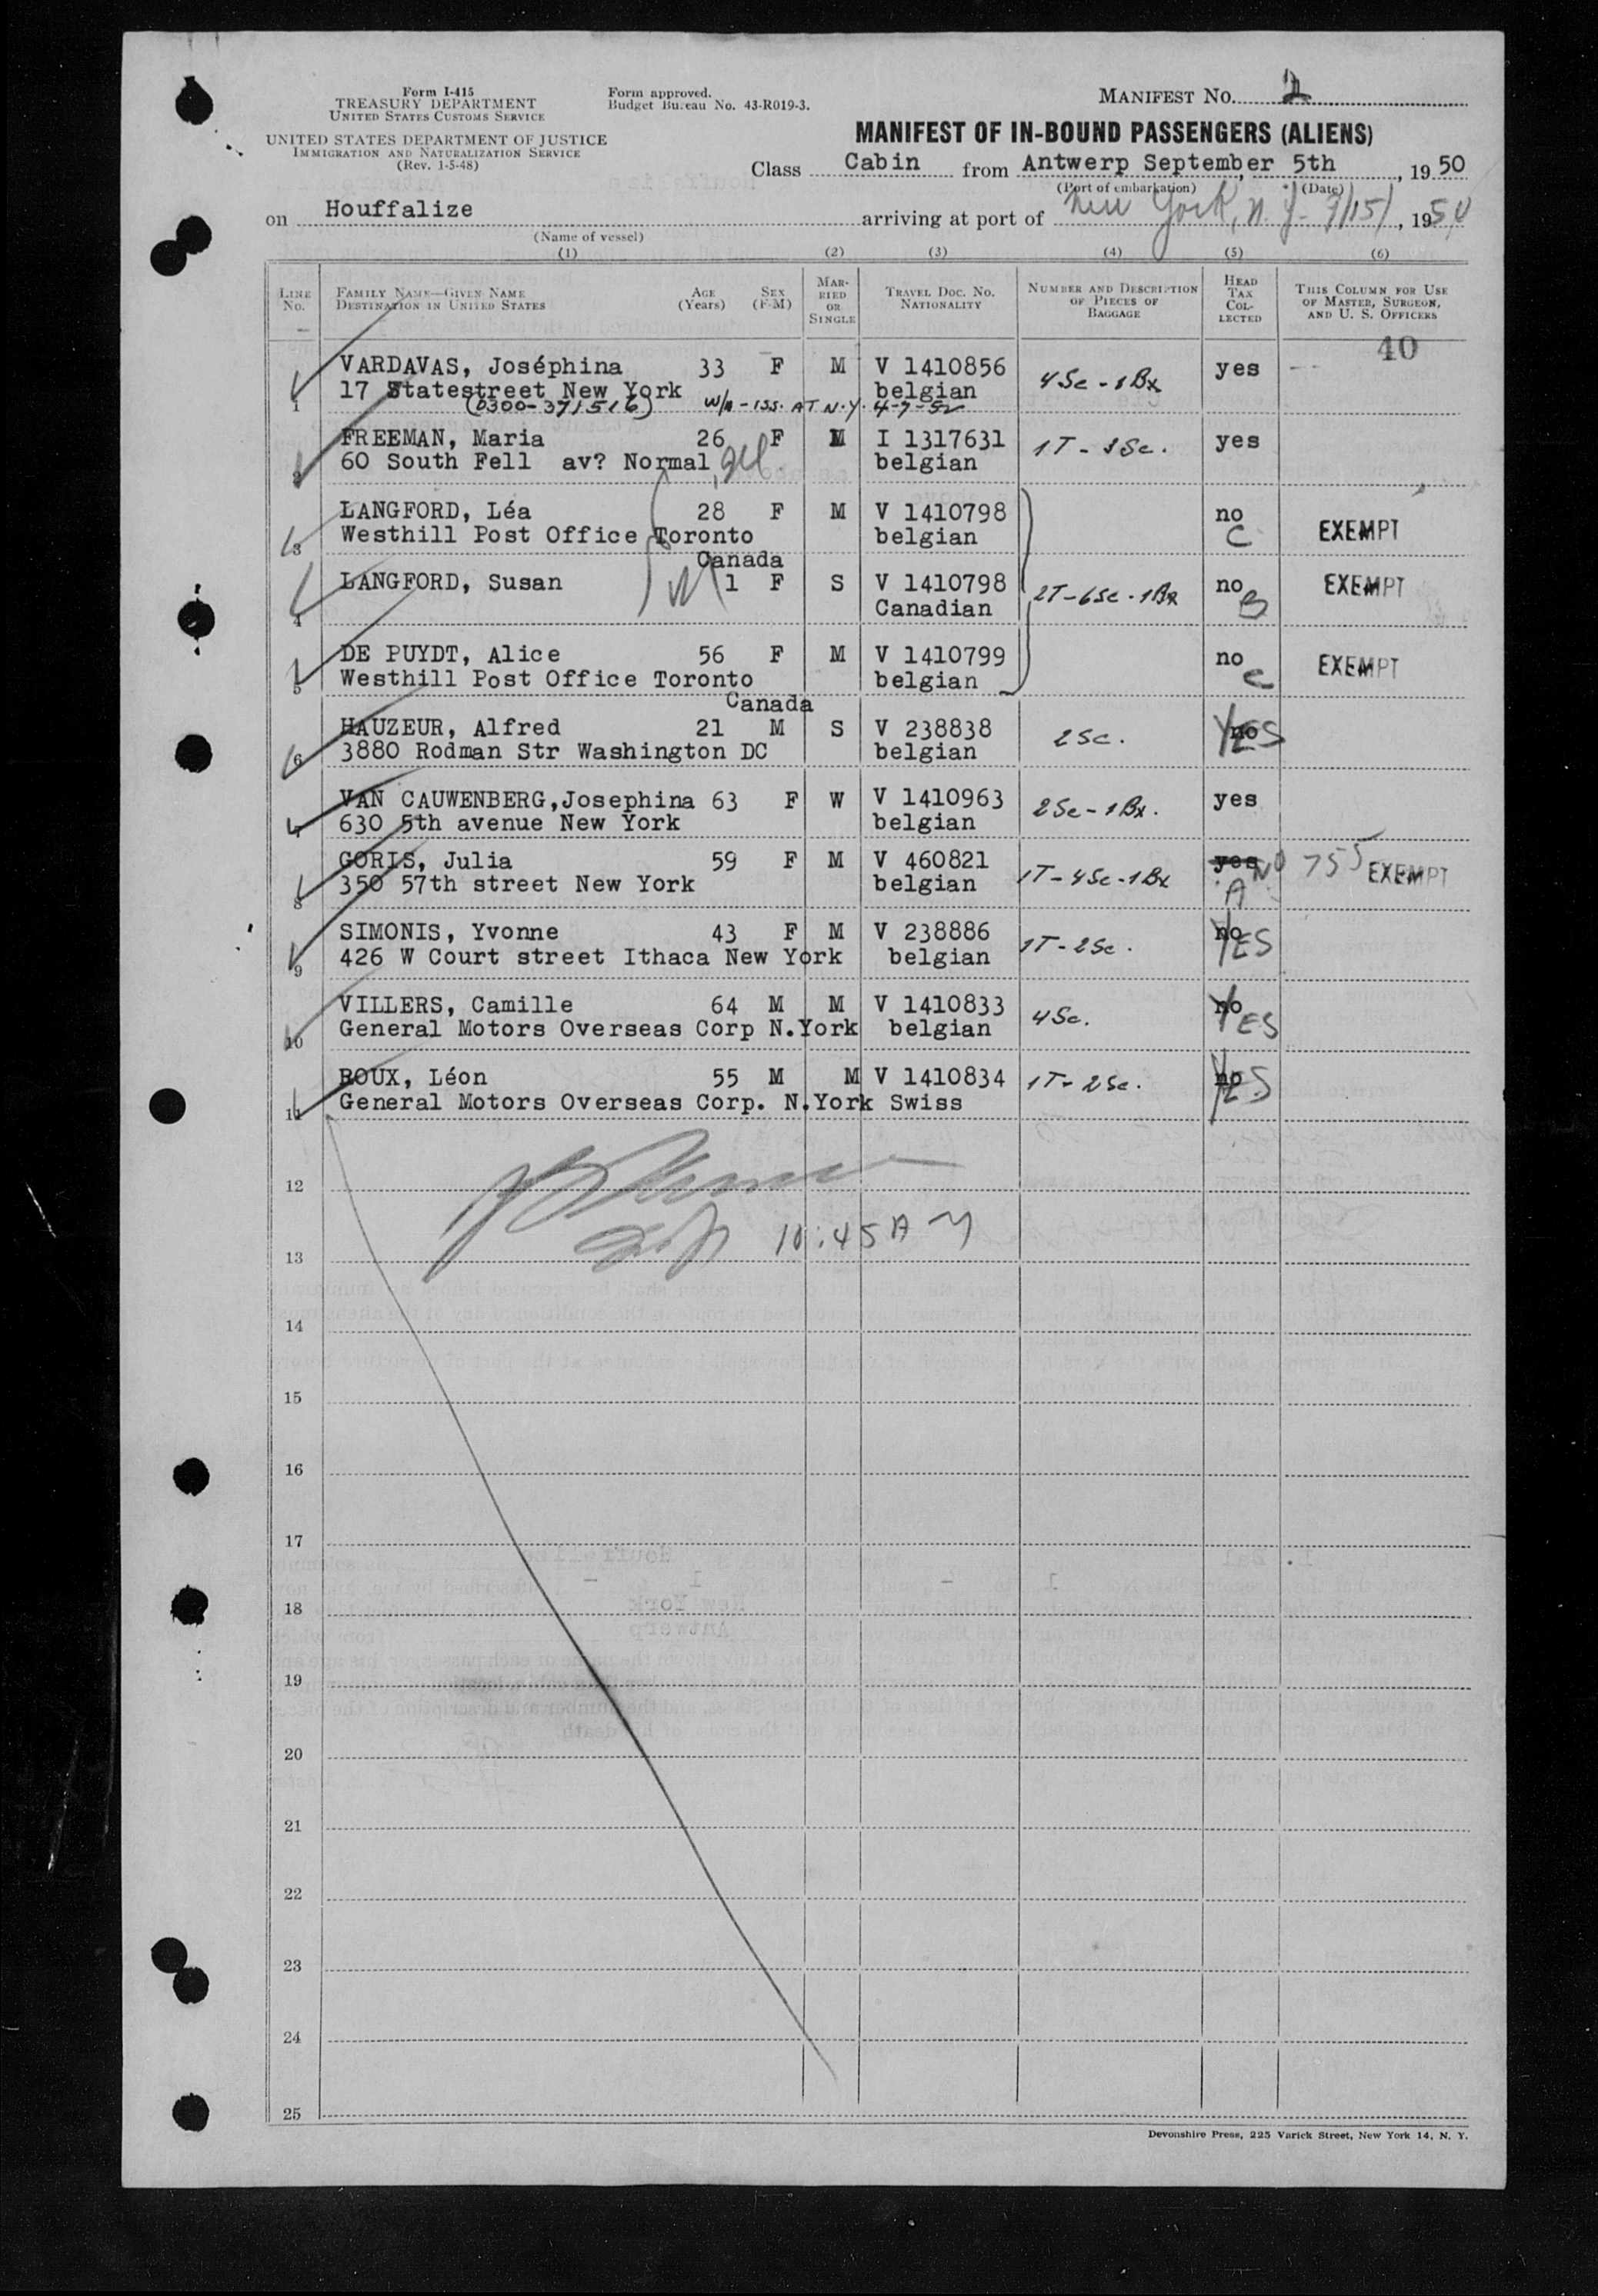 Form I-415
TREASURY DEPARTMENT
UNITED STATES CUSTOMS SERVICE
UNITED STATES DEPARTMENT OF JUSTICE
IMMIGRATION AND NATURALIZATION SERVICE
(Rev. 1-5-48)
Form approved.
Budget Bureau No. 43-R019-3.
MANIFEST NO.
MANIFEST OF IN-BOUND PASSENGERS (ALIENS)
Class Cabin from Antwerp September 5th, 1950
(Port of embarkation) (Date)
on Houffalize arriving at port of New York, N.Y. 9/15/, 1950
(Name of vessel)
(1) (2) (3) (4) (5) (6)
LINE NO. FAMILY NAME—GIVEN NAME DESTINATION IN UNITED STATES AGE (Years) SEX (F-M) MARRIED OR SINGLE TRAVEL DOC. NO. NATIONALITY NUMBER AND DESCRIPTION OF PIECES OF BAGGAGE HEAD TAX COLLECTED THIS COLUMN FOR USE OF MASTER, SURGEON, AND U. S. OFFICERS
40
1 VARDAVAS, Joséphina 33 F M V 1410856 4Sc - 1Bx yes
17 Statestreet New York belgian
(0300-371516) W/A - ISS. AT N.Y. 4-7-52
2 FREEMAN, Maria 26 F M I 1317631 1T - 3Sc. yes
60 South Fell av? Normal, Ill. belgian
3 LANGFORD, Léa 28 F M V 1410798 no C EXEMPT
Westhill Post Office Toronto belgian
Canada
4 LANGFORD, Susan 1 F S V 1410798 2T-6Sc-1Bx no B EXEMPT
Canadian
5 DE PUYDT, Alice 56 F M V 1410799 no C EXEMPT
Westhill Post Office Toronto belgian
Canada
6 HAUZEUR, Alfred 21 M S V 238838 2Sc. no YES
3880 Rodman Str Washington DC belgian
7 VAN CAUWENBERG, Josephina 63 F W V 1410963 2Sc-1Bx. yes
630 5th avenue New York belgian
8 GORIS, Julia 59 F M V 460821 1T-4Sc-1Bx yes NO 755 EXEMPT
350 57th street New York belgian A
9 SIMONIS, Yvonne 43 F M V 238886 1T-2Sc. no YES
426 W Court street Ithaca New York belgian
10 VILLERS, Camille 64 M M V 1410833 4Sc. no YES
General Motors Overseas Corp N.York belgian
11 ROUX, Léon 55 M M V 1410834 1T-2Sc. no YES
General Motors Overseas Corp. N.York Swiss
12
10:45 AM
13
14
15
16
17
18
19
20
21
22
23
24
25
Devonshire Press, 225 Varick Street, New York 14, N. Y.